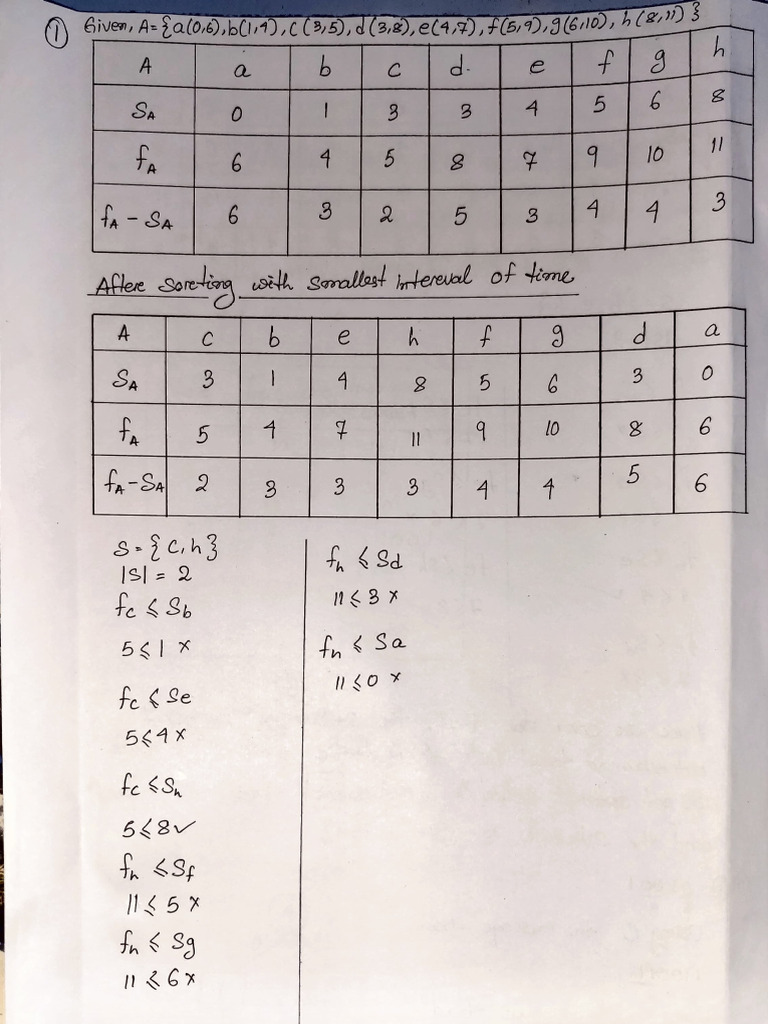 ① Given, A={a(0,6),b(1,4),c(3,5),d(3,8),e(4,7),f(5,9),g(6,10),h(8,11)}
A a b c d. e f g h
SA 0 1 3 3 4 5 6 8
fA 6 4 5 8 7 9 10 11
fA - SA 6 3 2 5 3 4 4 3
Aftere Soreting with smallest intereval of time
A c b e h f g d a
SA 3 1 4 8 5 6 3 0
fA 5 4 7 11 9 10 8 6
fA-SA 2 3 3 3 4 4 5 6
S={c,h}
|S| = 2
fc ≤ Sb
5≤1 ×
fc ≤ Se
5≤4 ×
fc ≤ Sh
5≤8 ✓
fh ≤ Sf
11≤ 5 ×
fh ≤ Sg
11 ≤6 ×
fh ≤ Sd
11≤3 ×
fh ≤ Sa
11≤0 ×